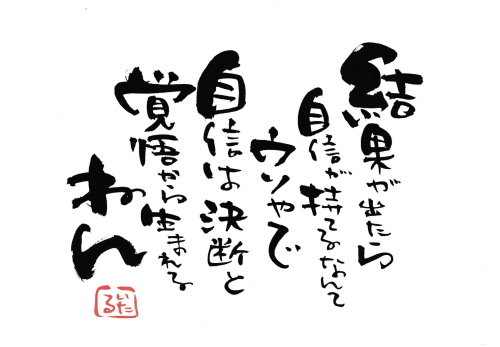 結果が出たら
自信が持てるなんて
ウソやで
自信は決断と
覚悟から生まれる
ねん
いた
る